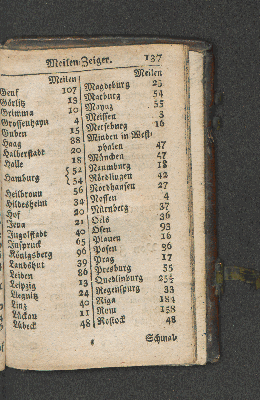 Meilen-Zeiger. 137
Meilen
Genf 107
Görlitz 13
Grimma 10
Grossenhayn 4
Guben 15
Haag 88
Halberstadt 20
Halle 18
Hamburg {52
{54
Heilbronn 56
Hildesheim 34
Hof 20
Jena 21
Ingolstadt 40
Inspruck 65
Königsberg 96
Landshut 39
Leiden 86
Leipzig 13
Liegnitz 24
Linz 40
Luckau 11
Lübeck 48
Meilen
Magdeburg 25
Marburg 54
Maynz 55
Meissen 3
Merseburg 16
Minden in West-
phalen 47
München 47
Naumburg 18
Nördlingen 42
Nordhausen 27
Nossen 4
Nürnberg 37
Oels 36
Ofen 93
Plauen 16
Posen 36
Prag 17
Presburg 55
Quedlinburg 25½
Regenspurg 33
Riga 184
Rom 158
Rostock 48
Schmal-